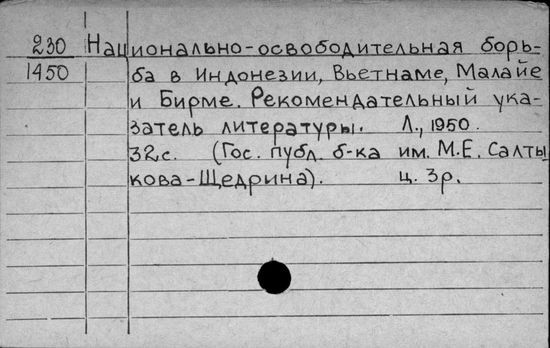 230 Национально-освободительная борь-
1450 ба в Индонезии, Вьетнаме, Малайе
и Бирме. Рекомендательный ука-
затель литературы. Л., 1950.
32с. (Гос. публ. б-ка им. М.Е. Салты
кова-Щедрина). ц. 3р.